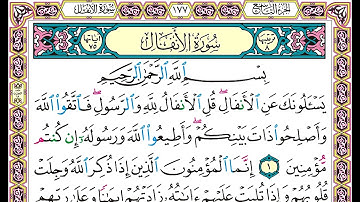 الجزء التاسع ١٧٧ سورة الأنفال
ترتيبها ٨ سُورَةُ الأَنفَال آياتها ٧٥
بِسْمِ ٱللَّهِ ٱلرَّحْمَٰنِ ٱلرَّحِيمِ
يَسْـَٔلُونَكَ عَنِ ٱلْأَنفَالِ ۖ قُلِ ٱلْأَنفَالُ لِلَّهِ وَٱلرَّسُولِ ۖ فَٱتَّقُوا۟ ٱللَّهَ
وَأَصْلِحُوا۟ ذَاتَ بَيْنِكُمْ ۖ وَأَطِيعُوا۟ ٱللَّهَ وَرَسُولَهُۥٓ إِن كُنتُم
مُّؤْمِنِينَ ١ إِنَّمَا ٱلْمُؤْمِنُونَ ٱلَّذِينَ إِذَا ذُكِرَ ٱللَّهُ وَجِلَتْ
قُلُوبُهُمْ وَإِذَا تُلِيَتْ عَلَيْهِمْ ءَايَٰتُهُۥ زَادَتْهُمْ إِيمَٰنًا وَعَلَىٰ رَبِّهِمْ